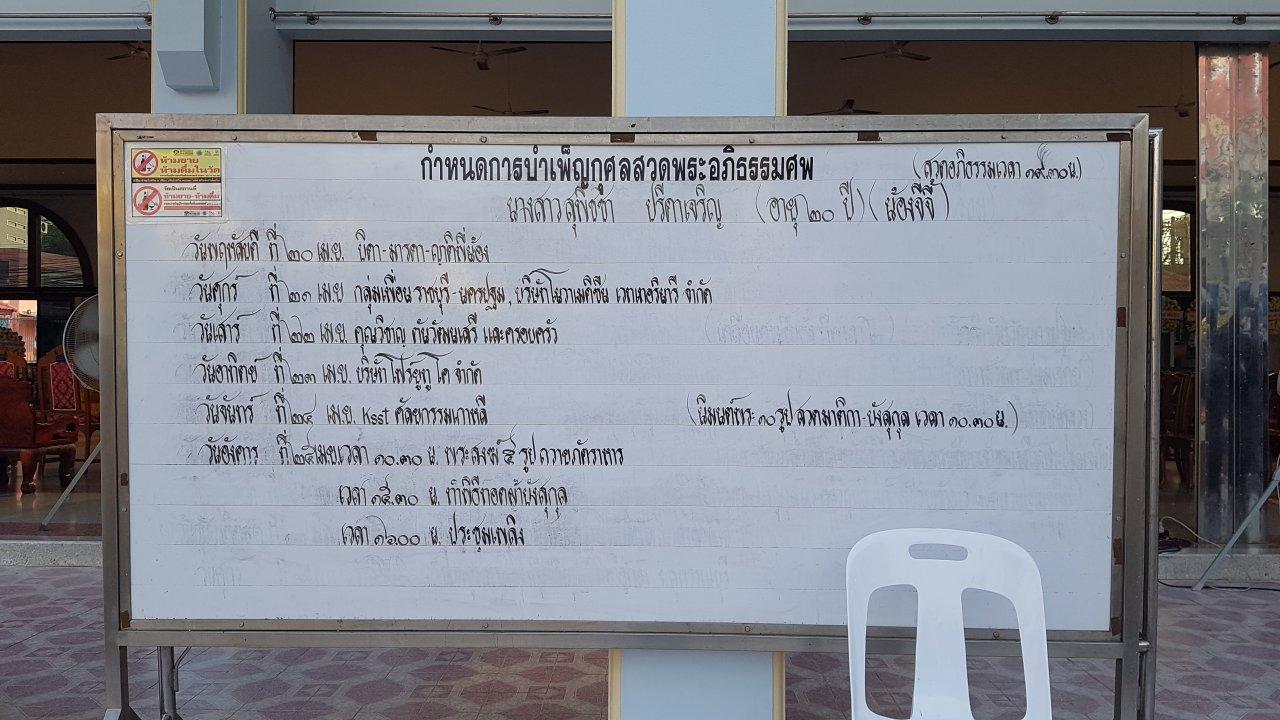 ห้ามขาย
ห้ามดื่มในวัด
ห้ามขาย-ห้ามดื่ม
กำหนดการบำเพ็ญกุศลสวดพระอภิธรรมศพ
(สวดอภิธรรมเวลา ๑๙.๓๐ น.)
นางสาวสุพิชชา ปรีดาเจริญ (อายุ ๒๐ ปี) (น้องจีจี้)
วันพฤหัสบดี ที่ ๒๐ เม.ย. บิดา-มารดา-ญาติพี่น้อง
วันศุกร์ ที่ ๒๑ เม.ย กลุ่มเพื่อน ราชบุรี-นครปฐม, บริษัท เวทเทอรินารี จำกัด
วันเสาร์ ที่ ๒๒ เม.ย. คุณวิชญ และครอบครัว
วันอาทิตย์ ที่ ๒๓ เม.ย. บริษัท จำกัด
วันจันทร์ ที่ ๒๔ เม.ย. Ksst ศัลยกรรมเกาหลี (นิมนต์พระ ๑๐ รูป สวดมาติกา-บังสุกุล เวลา ๑๐.๓๐ น.)
วันอังคาร ที่ ๒๕ เม.ย. เวลา ๑๐.๓๐ น. พระสงฆ์ ๕ รูป ถวายภัตราหาร
เวลา ๑๕.๓๐ น. ทำพิธีทอดผ้าบังสุกุล
เวลา ๑๖๐๐ น. ประชุมเพลิง